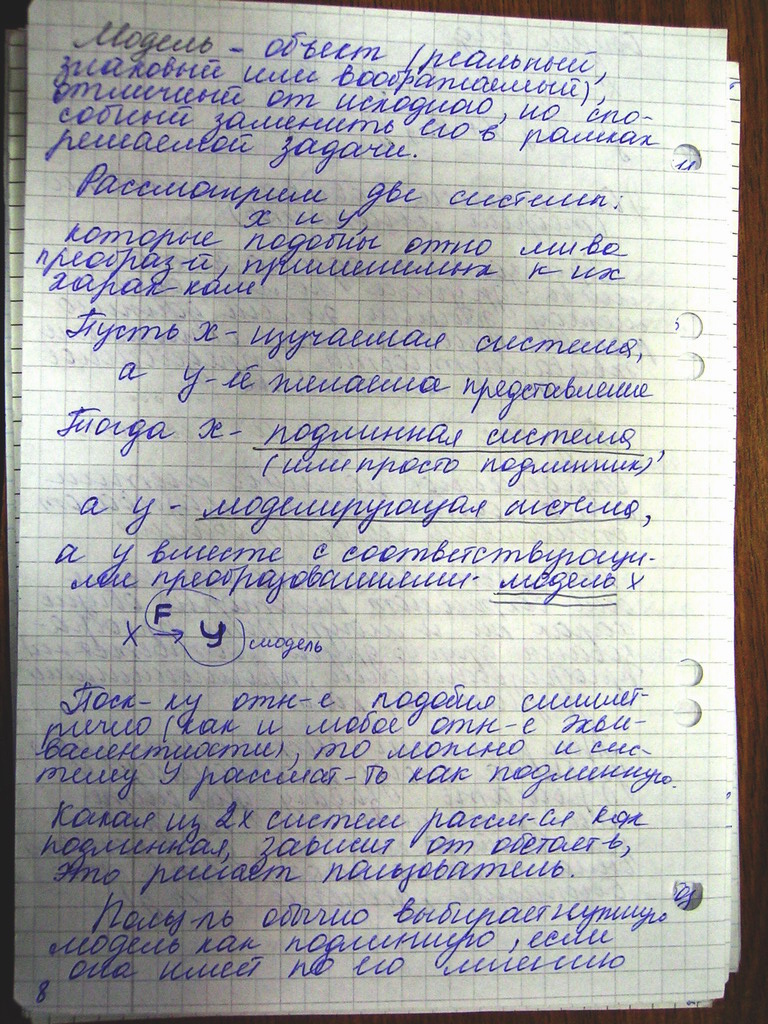 Модель - объект (реальный,
знаковый или воображаемый),
отличный от исходного, но спо-
собный заменить его в рамках
решаемой задачи.
Рассмотрим две системы:
x и y,
которые подобны относ мн-ва
преобраз-й, применимых к их
харак-кам
Пусть x - изучаемая система,
а y - её желаема представление
Тогда x - подлинная система,
(или просто подлинник)
а y - моделирующая система,
а y вместе с соответствующи-
ми преобразованиями - модель x
F
X → Y модель
Поск-ку отн-е подобия симмет-
рично (как и любое отн-е экви-
валентности), то можно и сис-
тему y рассмат-ть как подлинную.
Какая из 2х систем рассм-ся как
подлинная, зависит от обстоят-в,
это решает пользователь.
Польз-ль обычно выбирает нужную
модель как подлинную, если
она имеет по его мнению
8